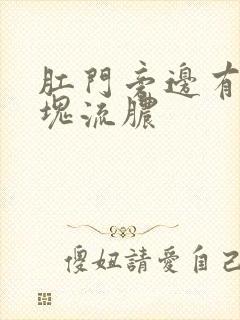 肛門旁邊有
塊流膿
傻妞請愛自己